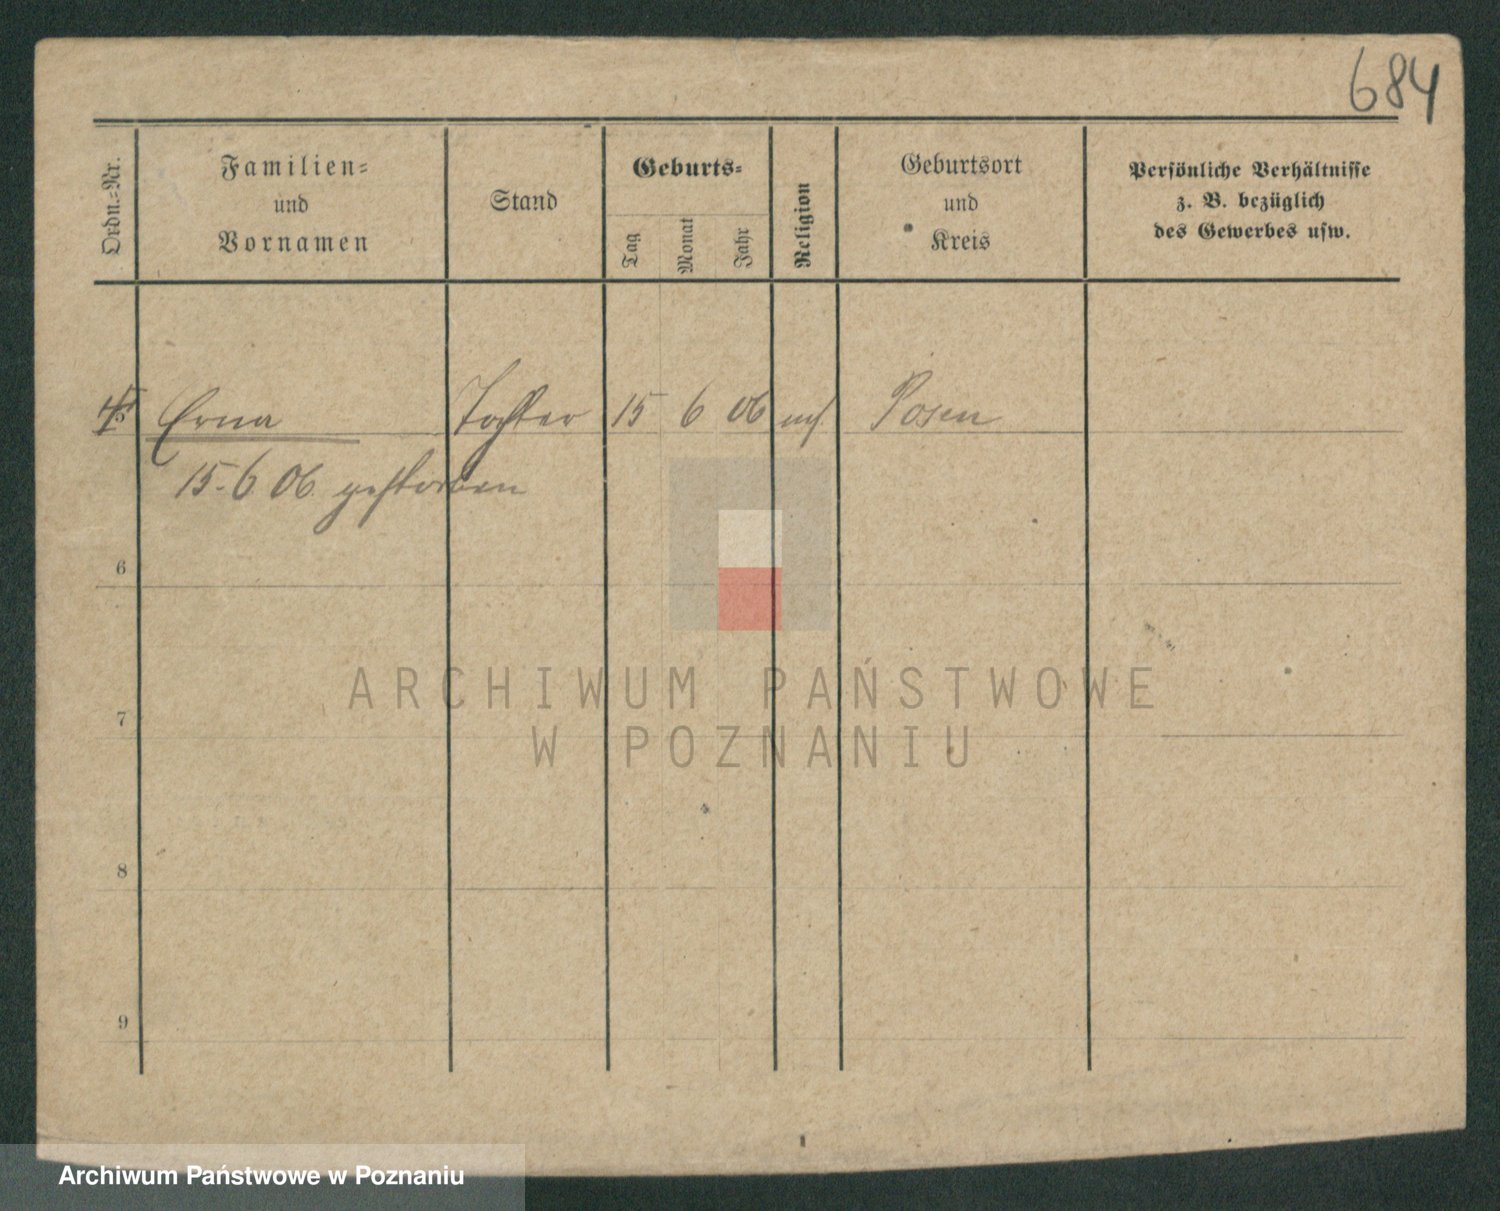 684
Ordn.-Nr.
Familien-
und
Vornamen
Stand
Geburts-
Tag
Monat
Jahr
Religion
Geburtsort
und
Kreis
Persönliche Verhältnisse
z. B. bezüglich
des Gewerbes usw.
Erna Tochter 15 6 06 Posen
15. 6. 06. gestorben
6
ARCHIWUM PAŃSTWOWE
7
W POZNANIU
8
9
Archiwum Państwowe w Poznaniu